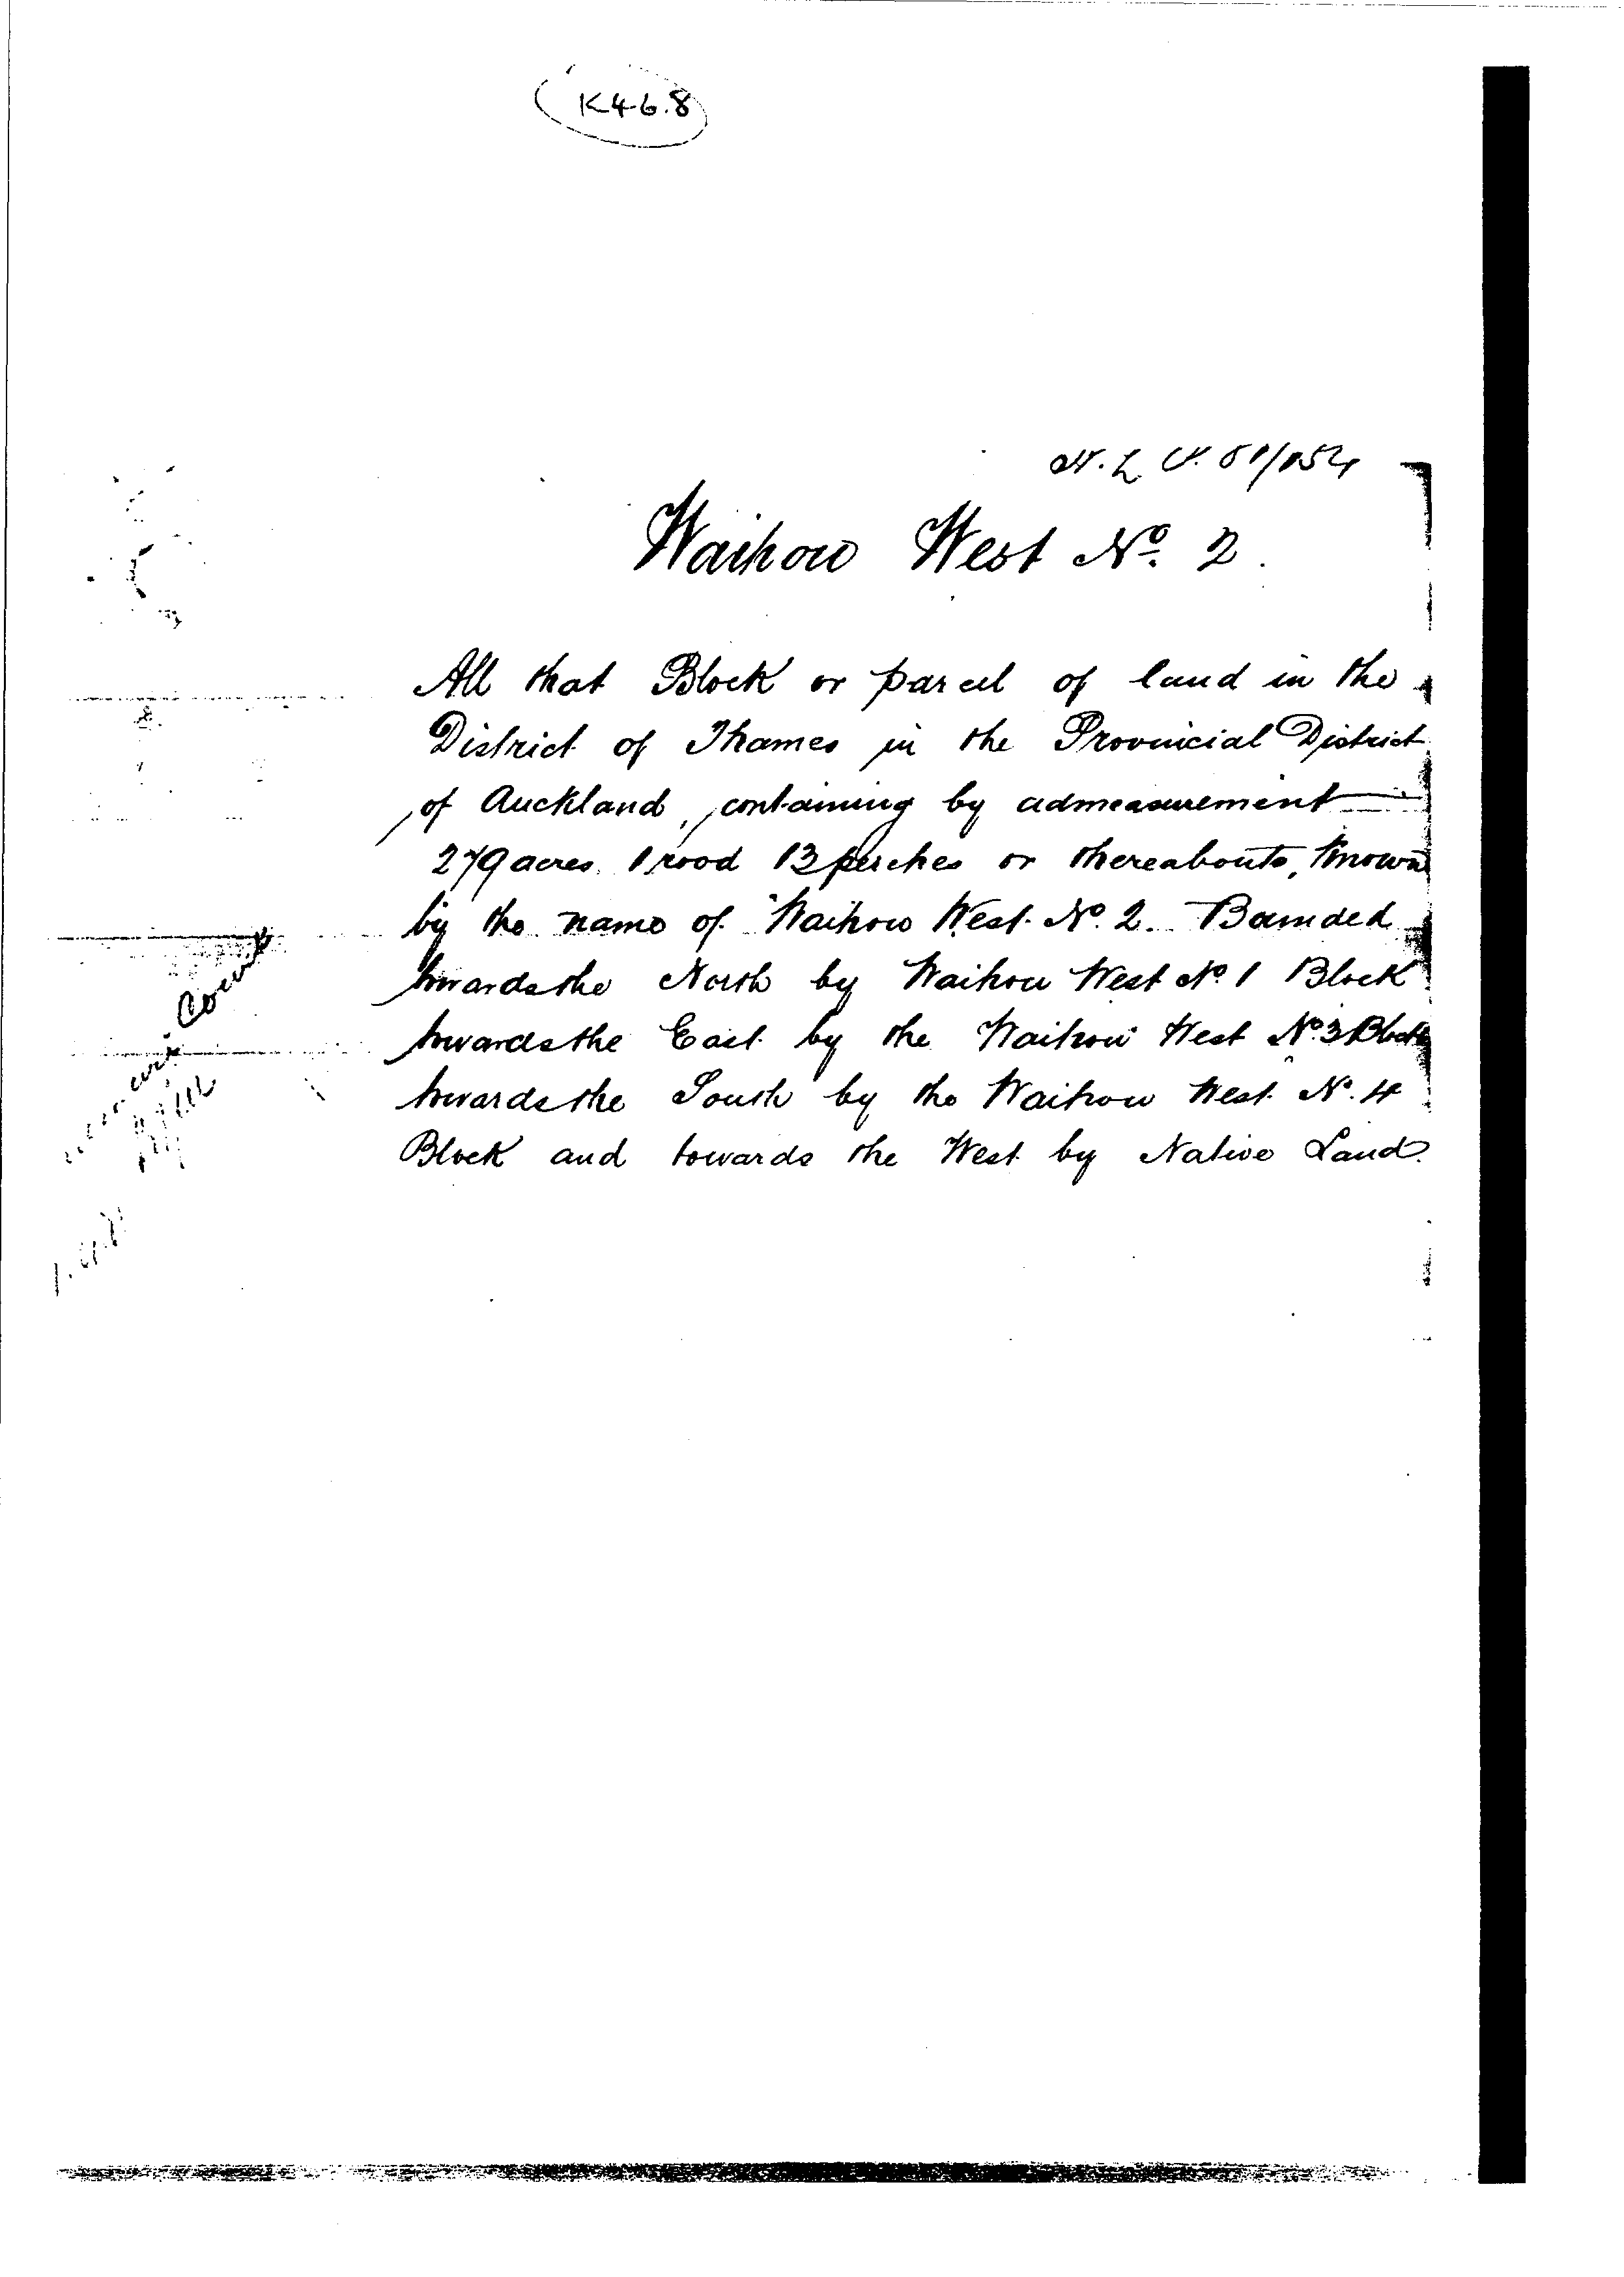 K46.8
Waihou West No. 2.
All that Block or parcel of land in the
District of Thames in the Provincial District
of Auckland, containing by admeasurement
279 acres 1 rood 13 perches or thereabouts, known
by the name of Waihou West No. 2. Bounded
towards the North by Waihou West No 1 Block
towards the East by the Waihou West No 3 Block
towards the South by the Waihou West No. 4
Block and towards the West by Native Land.
Court